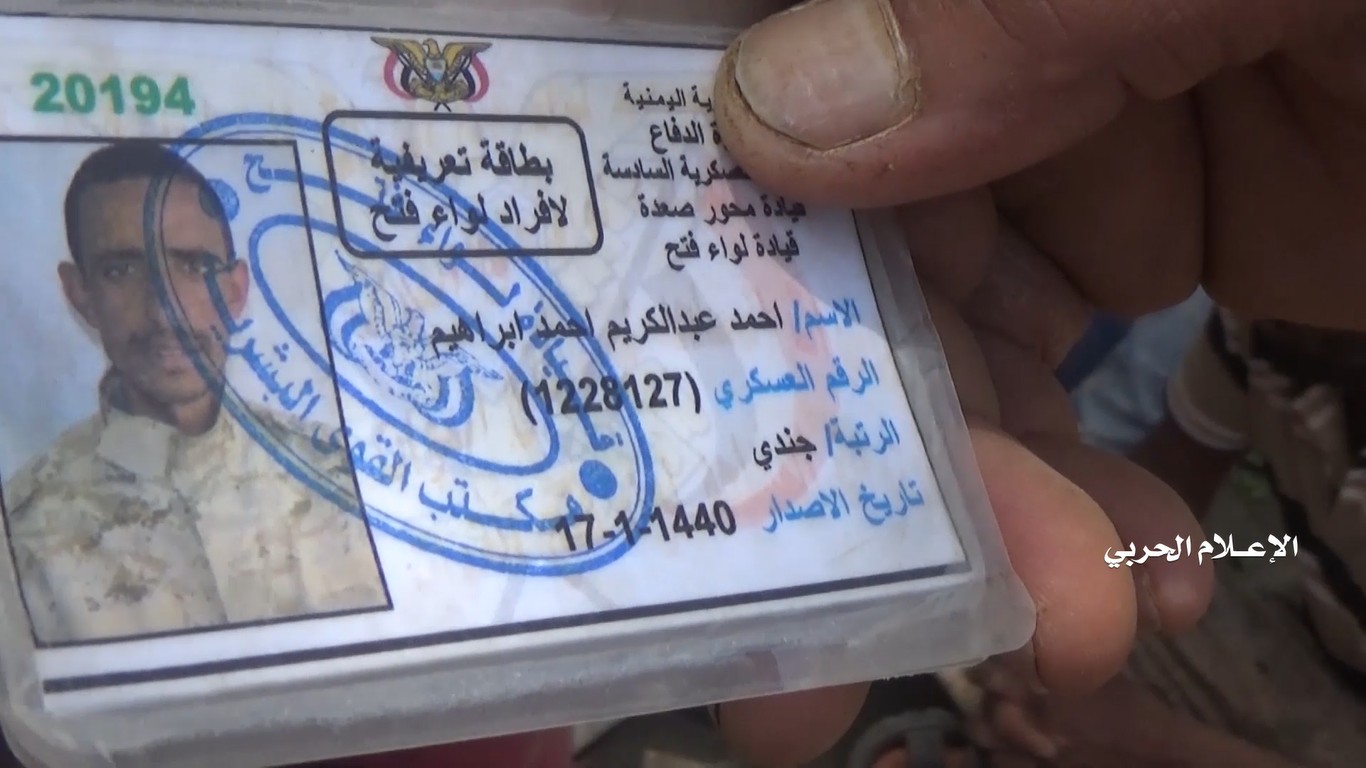 20194
ية اليمنية
ة الدفاع
عسكرية السادسة
قيادة محور صعدة
قيادة لواء فتح
بطاقة تعريفية
لافراد لواء فتح
الاسم/ احمد عبدالكريم احمد ابراهيم
الرقم العسكري (1228127)
الرتبة/ جندي
تاريخ الاصدار 17-1-1440
مكتب القوى البشرية
الإعلام الحربي